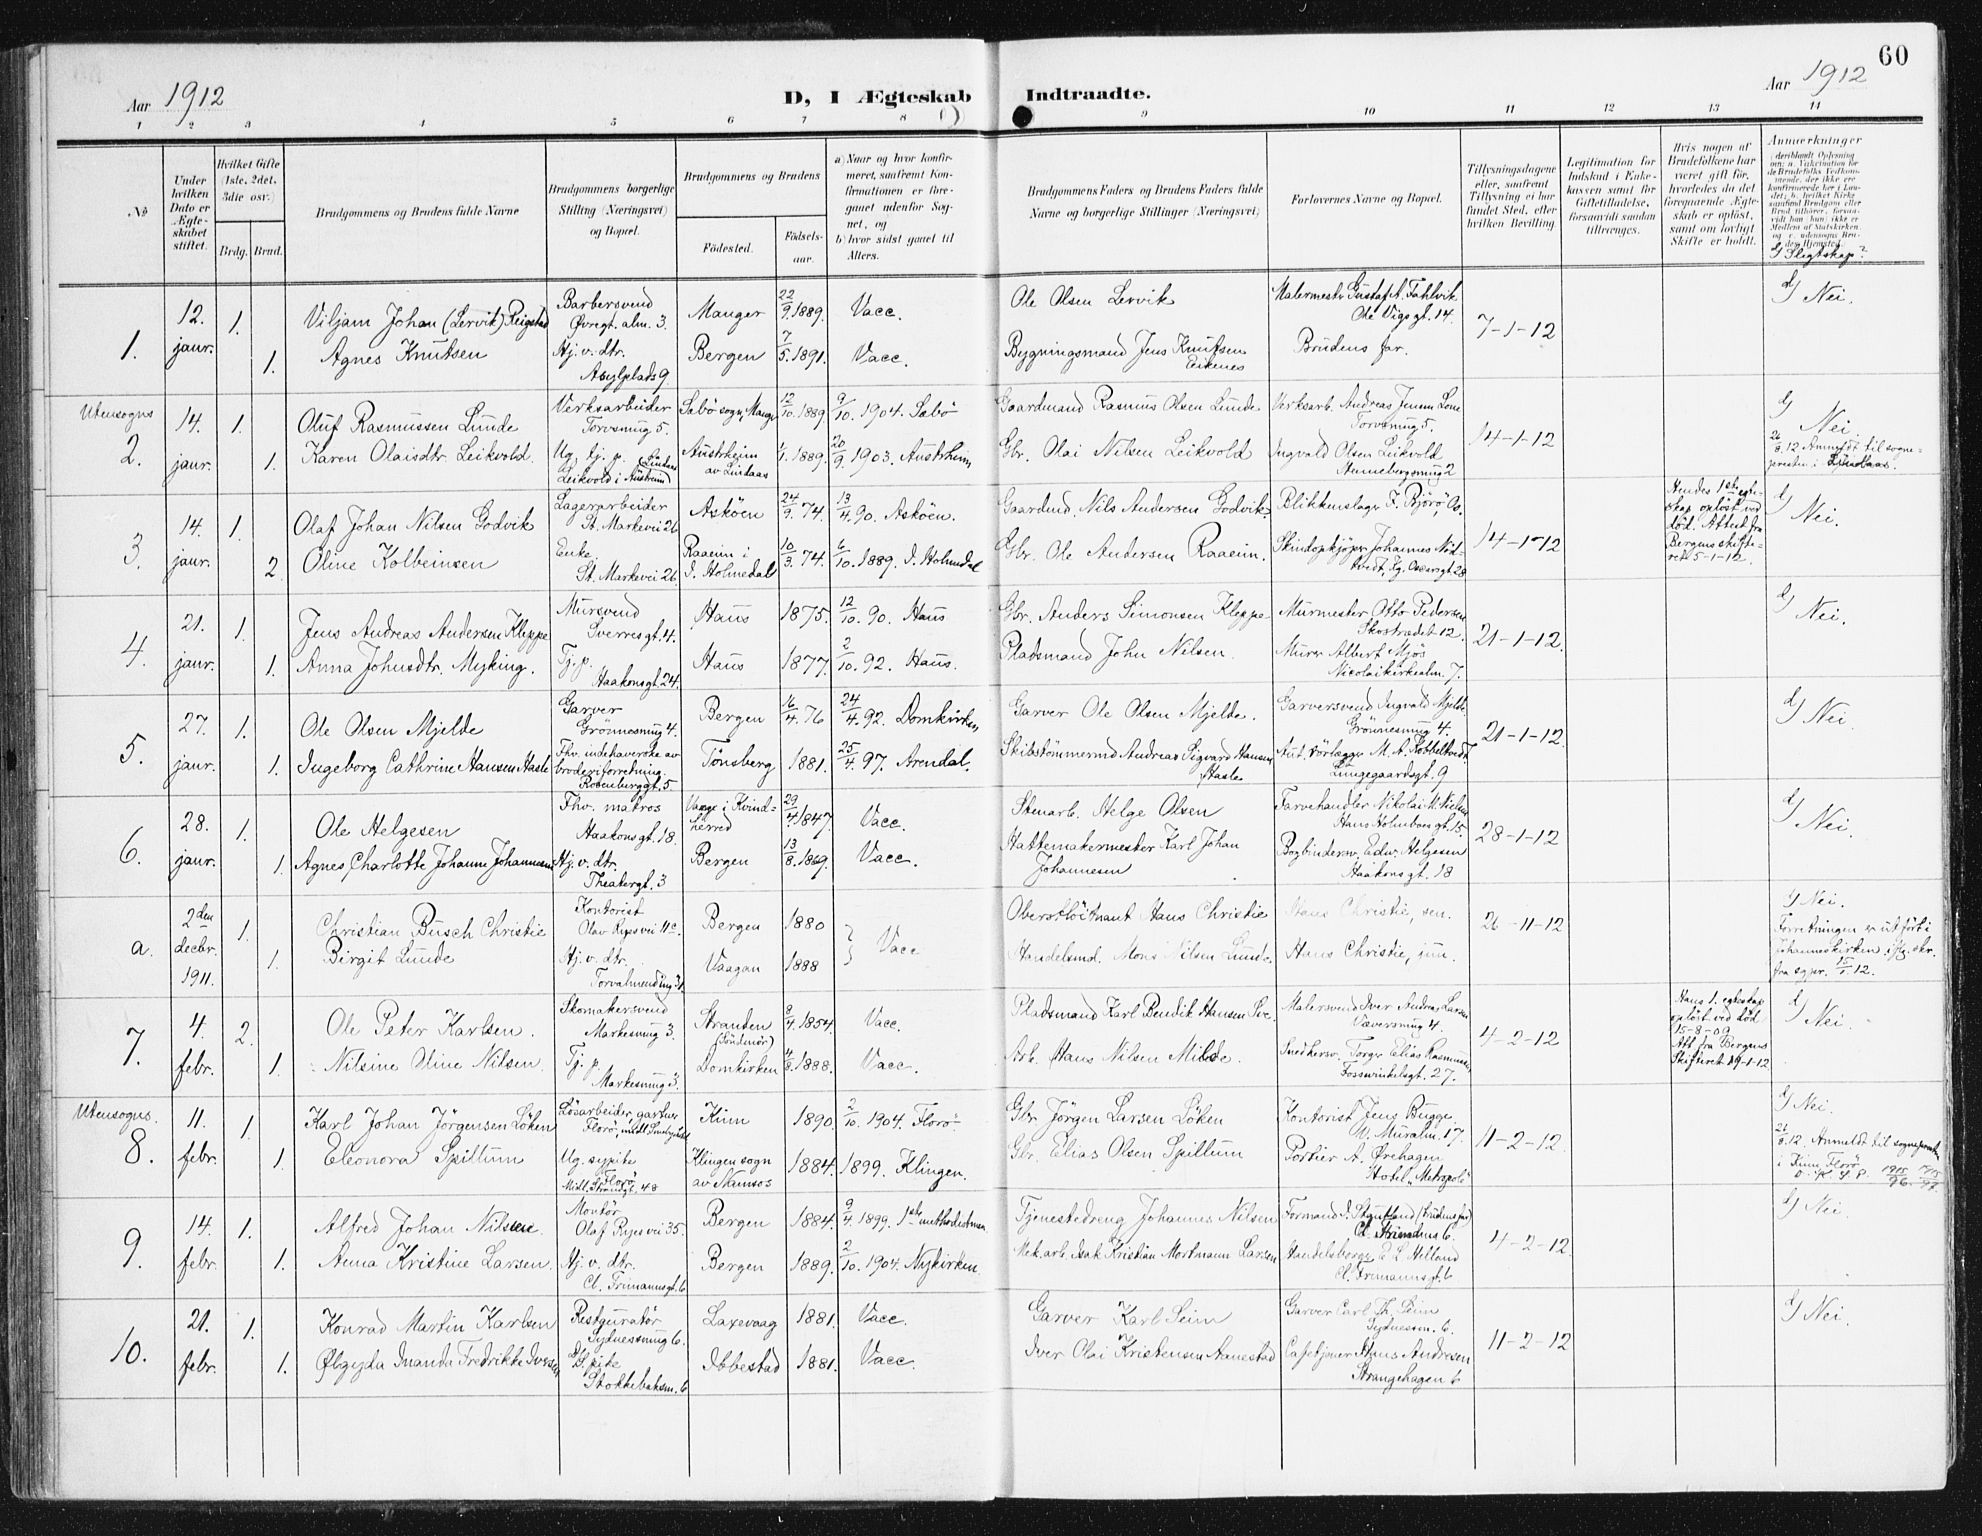 60
Aar 1912
D, I Ægteskab Indtraadte.
Aar 1912
1 2 3 4 5 6 7 8 9 10 11 12 13 14
No
Under hvilken Dato er Ægteskabet stiftet.
Hvilket Gifte (1ste, 2det, 3die osv.)
Brdg. Brud.
Brudgommens og Brudens fulde Navne
Brudgommens borgerlige Stilling (Næringsvei) og Bopæl.
Brudgommens og Brudens
Fødested.
Fødselsaar.
a) Naar og hvor konfirmeret, saafremt Konfirmationen er foregaaet udenfor Sognet, og
b) hvor sidst gaaet til Alters.
Brudgommens Faders og Brudens Faders fulde Navne og borgerlige Stillinger (Næringsvei)
Forlovernes Navne og Bopæl.
Tillysningsdagene eller, saafremt Tillysning ei har fundet Sted, efter hvilken Bevilling.
Legitimation for Indskud i Enkekassen samt for Giftetilladelse, forsaavidt saadan tiltrænges.
Hvis nogen af Brudefolkene har været gift før, hvorledes da det foregaaende Ægteskab er opløst, samt om lovligt Skifte er holdt.
Anmerkninger
d/ Slegtskap?
1. 12. jaur. 1. Viljam Johan (Lervik) Reigstad Barbersvend Øvregt. alm. 3. Manger 22/9 1889. Vacc. Ole Olsen Lervik Malermester Gustaf A. Fahlvik Ole Vigs gt. 14. 7-1-12 d/ Nei.
1. Agnes Knutsen Hj. v. dtr. Asylplads 9. Bergen 7/5 1891. Vacc. Bygningsmand Jens Knutsen Eikenes Brudens far.
Utensogns
2. 14. jaur. 1. Oluf Rasmussen Lunde Verksarbeider Torvsmug 5. Sæbø sogn, Manger 12/10 1889. 9/10. 1904. Sæbø Gaardmand Rasmus Olsen Lunde Verksarb. Andreas Jensen Lone Torvsmug 5. 14-1-12 d/ Nei.
1. Karen Olaisdtr. Leikvold. Ug. tj. p. Leikvold i Austrheim Austrheim av Lindaas 1/1 1889. 20/9. 1903. Austrheim Gbr. Olai Nilsen Leikvold Ingvald Olsen Leikvold Annebergsmug 2 26/8.12 Anmeldt til sognepresten i Lindaas.
3. 14. jaur. 1. Olaf Johan Nilsen Godvik Lagerarbeider St. Markevei 26 Askøen 24/9. 74. 13/4. 90. Askøen. Gaardmd. Nils Andersen Godvik. Blikkenslager F. Bjørø, Os. 14-1-12 Hendes 1ste egteskap opløst ved død. Attest fra Bergens skifteret 5-1-12. d/ Nei.
2. Oline Kolbeinsen Enke St. Markevei 26 Raaeim i I. Holmedal 10/3. 74. 6/10. 1889. I. Holmedal Gbr. Ole Andersen Raaeim. Skindopkjøper Johannes Nødtvedt, Lg. Oscarsgt 28
4. 21. jaur. 1. Jens Andreas Andersen Kleppe Mursvend Sverresgt. 4. Haus 1875. 12/10. 90. Haus Gbr. Anders Simonsen Kleppe. Murmester Otto Pedersen Skostrædet 12. 21-1-12. d/ Nei.
1. Anna Johnsdtr. Myking. Tj. p. Haakonsgt. 24. Haus 1877. 2/10. 92. Haus. Pladsmand John Nilsen. Murer Albert Mjøs Nicolaikirkealm. 7.
5. 27. jaur. 1. Ole Olsen Mjelde Garver Grønnesmug 4. Bergen 16/4. 76 24/4. 92. Domkirken, Garver Ole Olsen Mjelde. Garversvend Ingvald Mjelde Grønnesmug 4. 21-1-12. d/ Nei.
1. Ingeborg Cathrine Hansen Hasle Fhv. indehaverske av broderiforretning. Rosenberggt. 5 Tønsberg 1881. 25/4. 97. Arendal. Skibstømmermd Andreas Sigvard Hansen Hasle Aut. rørlægger M. A. Kobbeltvedt Lungegaardsgt. 9
6. 28. jaur. 1. Ole Helgesen Fhv. matros Haakonsgt. 18. Vaage i Kvindherred 29/4. 1847. Vacc. Stenarb. Helge Olsen Farvehandler Nikolai M. Nielsen Hans Holmboes gt. 15. 28-1-12 d/ Nei.
1. Agnes Charlotte Johanne Johannesen Hj. v. dtr. Theatergt. 3 Bergen 13/8. 1869. Vacc. Hattemakermester Karl Johan Johannesen Bogbindersv. Edw. Helgesen Haakons gt. 18
a. 2den decbr. 1911. 1. Christian Busch Christie Kontorist Olav Ryes vei 11c. Bergen 1880 Vacc Oberstløitnant Hans Christie Hans Christie, sen. 26-11-12 d/ Nei. Forretningen er utført i Johanneskirken iflg. skr. fra sgpr. 15/1. 12.
1. Birgit Lunde Hj. v. dtr. Torvalmending 31. Vaagan 1888 Handelsmd. Mons Nilsen Lunde. Hans Christie, jun.
7. 4. febr. 2. Ole Peter Karlsen. Skomakersvend Markesmug 3. Stranden (Søndmør) 8/4. 1854. Vacc. Pladsmand Karl Bendik Hansen Sve. Malersvend Iver Andreas Larsen Væversmug 4. 4-2-12 Hans 1. egteskap opløst ved død 15-8-09 Att fra Bergens Skifteret 19-1-12 d/ Nei.
1. Nilsine Oline Nilsen. Tj. p. Markesmug 3. Domkirken 4/8. 1888. Vacc. Arb. Hans Nilsen Milde. Snedkersv. Torger Elias Rasmussen, Fosswinkelsgt. 27.
Utensogns.
8. 11. febr. 1. Karl Johan Jørgensen Løken Løsarbeider, gartner Florø, Kinn 1890. 2/10. 1904. Florø. Gbr. Jørgen Larsen Løken Kontorist Jens Bugge. N. Muralm. 17. 11-2-12. d/ Nei.
1. Eleonora Spillum Ug. sypike Florø Midl. Strandgt. 48 Klingen sogn av Namsos 1884. 1899. Klingen. Gbr. Elias Olsen Spillum Portier A. Ørehagen Hotel „Metropole" 21/8. 12. Anmeldt til sognepresten i Kinn, Florø
9. 14. febr. 1. Alfred Johan Nilssen Montør Olaf Ryes vei 35. Bergen 1884. 9/4. 1899. 1ste methodistmen. Tjenestedreng Johannes Nilsen Formand I. (brudens far) Cl. Frimanns 6. 4-2-12. d/ Nei.
1. Anna Kristine Larsen. Hj. v. dtr. Cl. Frimannsgt. 6 Bergen 1889. 2/10. 1904. Nykirken. Mek. arb. Isak Kristian Mortmann Larsen Handelsborger E. L. Hilland Cl. Frimannsgt. 6
10. 21. febr. 1. Konrad Martin Karlsen Restguratør Sydnessmug 6. Laxevaag 1881. Vacc. Garver Karl Seim Garver Carl Th. Seim Sydnessm. 6. 11-2-12 d/ Nei.
1. Øbgyda Imanda Fredrikke Iversen Sypike Stokkebaksm. 6 Ibbestad 1881. Vacc. Iver Olai Kristensen Aanestad Cafetjener Hans Andresen Strangehagen 6